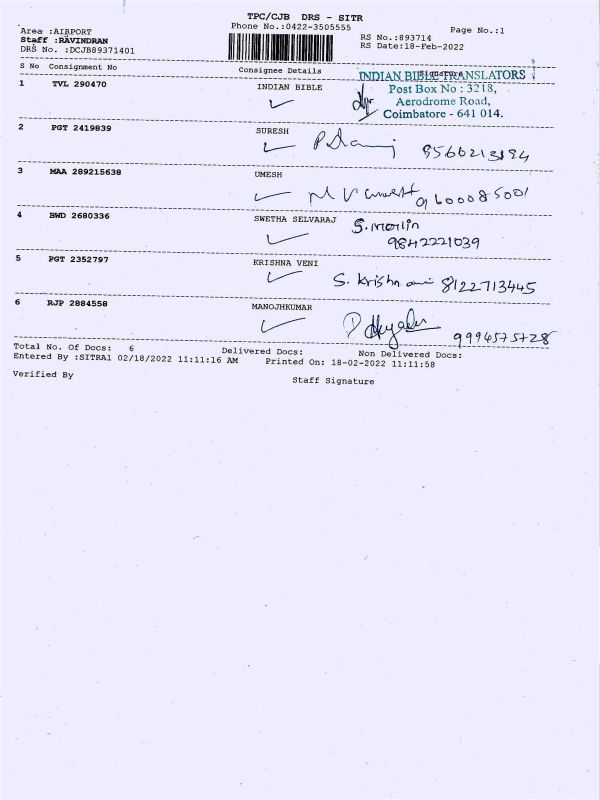 TPC/CJB DRS - SITR
Phone No.:0422-3505555
Page No.:1
Area :AIRPORT
Staff :RAVINDRAN
DRS No. :DCJB89371401
RS No.:893714
RS Date:18-Feb-2022
S No Consignment No Consignee Details Signature
INDIAN BIBLE TRANSLATORS
Post Box No : 3218,
Aerodrome Road,
Coimbatore - 641 014.
1 TVL 290470 INDIAN BIBLE
2 PGT 2419839 SURESH
3 MAA 289215638 UMESH
9600085001
4 BWD 2680336 SWETHA SELVARAJ S.merlin
9842221039
5 PGT 2352797 KRISHNA VENI S. Krishna 8122713445
6 RJP 2884558 MANOJHKUMAR
9994575728
Total No. Of Docs: 6 Delivered Docs: Non Delivered Docs:
Entered By :SITRA1 02/18/2022 11:11:16 AM Printed On: 18-02-2022 11:11:58
Verified By Staff Signature